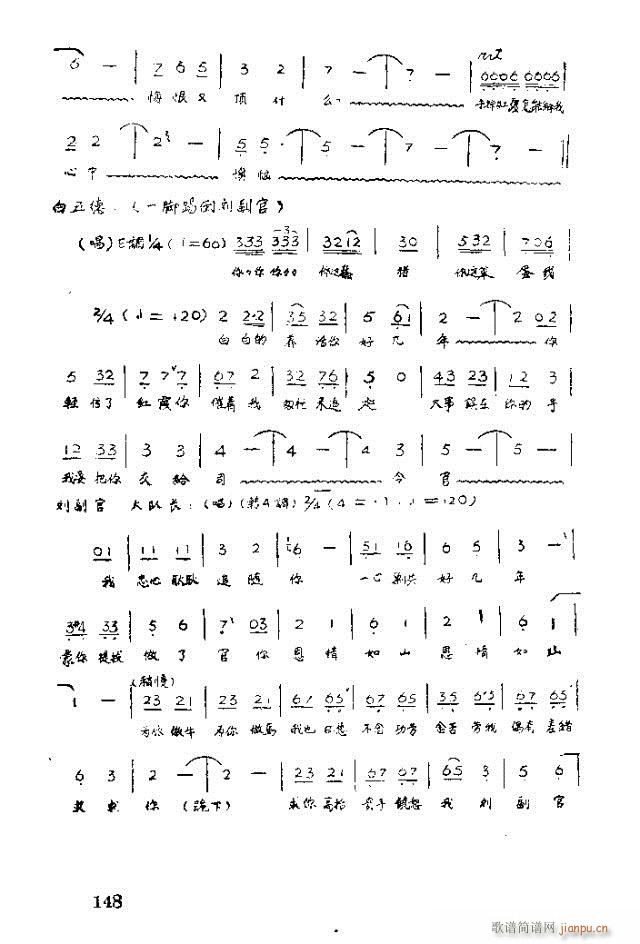 6 — | 7 6 5 | 3 2 | 7 — | 7 — | 0606 0606 |
悔恨又 顶什么
2 2 — | 2 | 5 5 · | 5 — | 7 — | 7 — |
心中 懊恼
白正德：（一脚踢倒刘副官）
（唱）E调 1/4 (♩=60) 333 333 | 3212 | 30 | 532 | 706 |
你 你 你 你这蠢 猪 你这笨 蛋我
2/4 (♩=120) 2 2·2 | 35 32 | 5 61 | 2 — | 2 02 |
白 白的 养活你 好几 年 你
5 32 | 7 7 7 | 67 2 | 32 76 | 5 0 | 43 23 | 12 3 |
轻信了 红霞你 催着我 匆忙来追赶 大事误在 你的手
12 33 | 3 3 | 4 — | 4 — | 4 3 | 5 — | 5 — |
我要把你 交给 司 令 官
刘副官 大队长：（唱）（转A调）2/4 (4=1 ♩=120)
01 | 11 11 | 3 2 | 6 — | 51 16 | 6 5 | 3 — |
我 忠心耿耿 追随你 一心 好几年
34 33 | 5 6 | 7 03 | 2 1 | 6 1 | 2 1 | 6 1 |
蒙你提拔 做了 官你 恩情 如山 恩情 如山
（稍慢）
1 — | 23 21 | 23 21 | 67 65 | 67 65 | 35 65 | 67 65 |
为你做牛 为你做马 我也日想 不念功劳 念苦劳我 偶有差错
6 3 | 2 — | 2 — | 23 21 | 67 65 | 65 3 | 5 6 |
哀求你（跪下） 求你高抬 贵手饶恕 我 刘 副官
148
歌谱简谱网
jianpu.cn